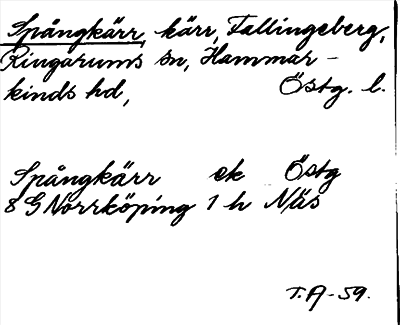 Spångkärr, kärr, Fallingeberg,
Ringarums sn, Hammar-
kinds hd, Östg. l.
Spångkärr ek Östg
8 G Norrköping 1 h Näs
T.A-59.